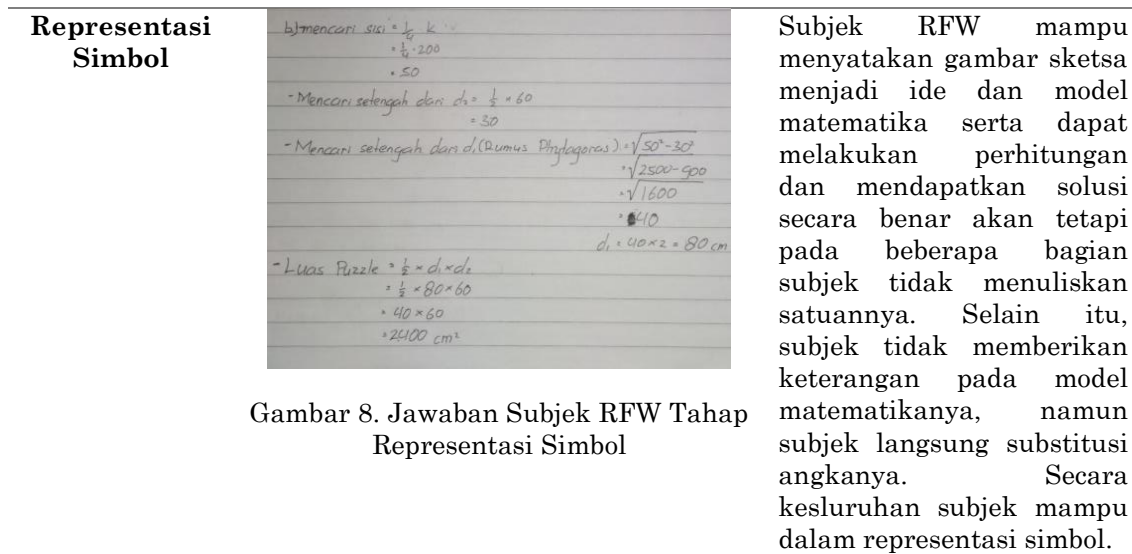 Representasi
Simbol
b) mencari sisi = 1/4 k
= 1/4 . 200
= 50
- Mencari setengah dari d₂ = 1/2 × 60
= 30
- Mencari setengah dari d₁ (Rumus Phytagoras) = √50²-30²
= √2500-900
= √1600
= 40
d₁ = 40×2 = 80 cm
- Luas Puzzle = 1/2 × d₁ × d₂
= 1/2 × 80 × 60
= 40 × 60
= 2400 cm²
Gambar 8. Jawaban Subjek RFW Tahap
Representasi Simbol
Subjek RFW mampu
menyatakan gambar sketsa
menjadi ide dan model
matematika serta dapat
melakukan perhitungan
dan mendapatkan solusi
secara benar akan tetapi
pada beberapa bagian
subjek tidak menuliskan
satuannya. Selain itu,
subjek tidak memberikan
keterangan pada model
matematikanya, namun
subjek langsung substitusi
angkanya. Secara
kesluruhan subjek mampu
dalam representasi simbol.